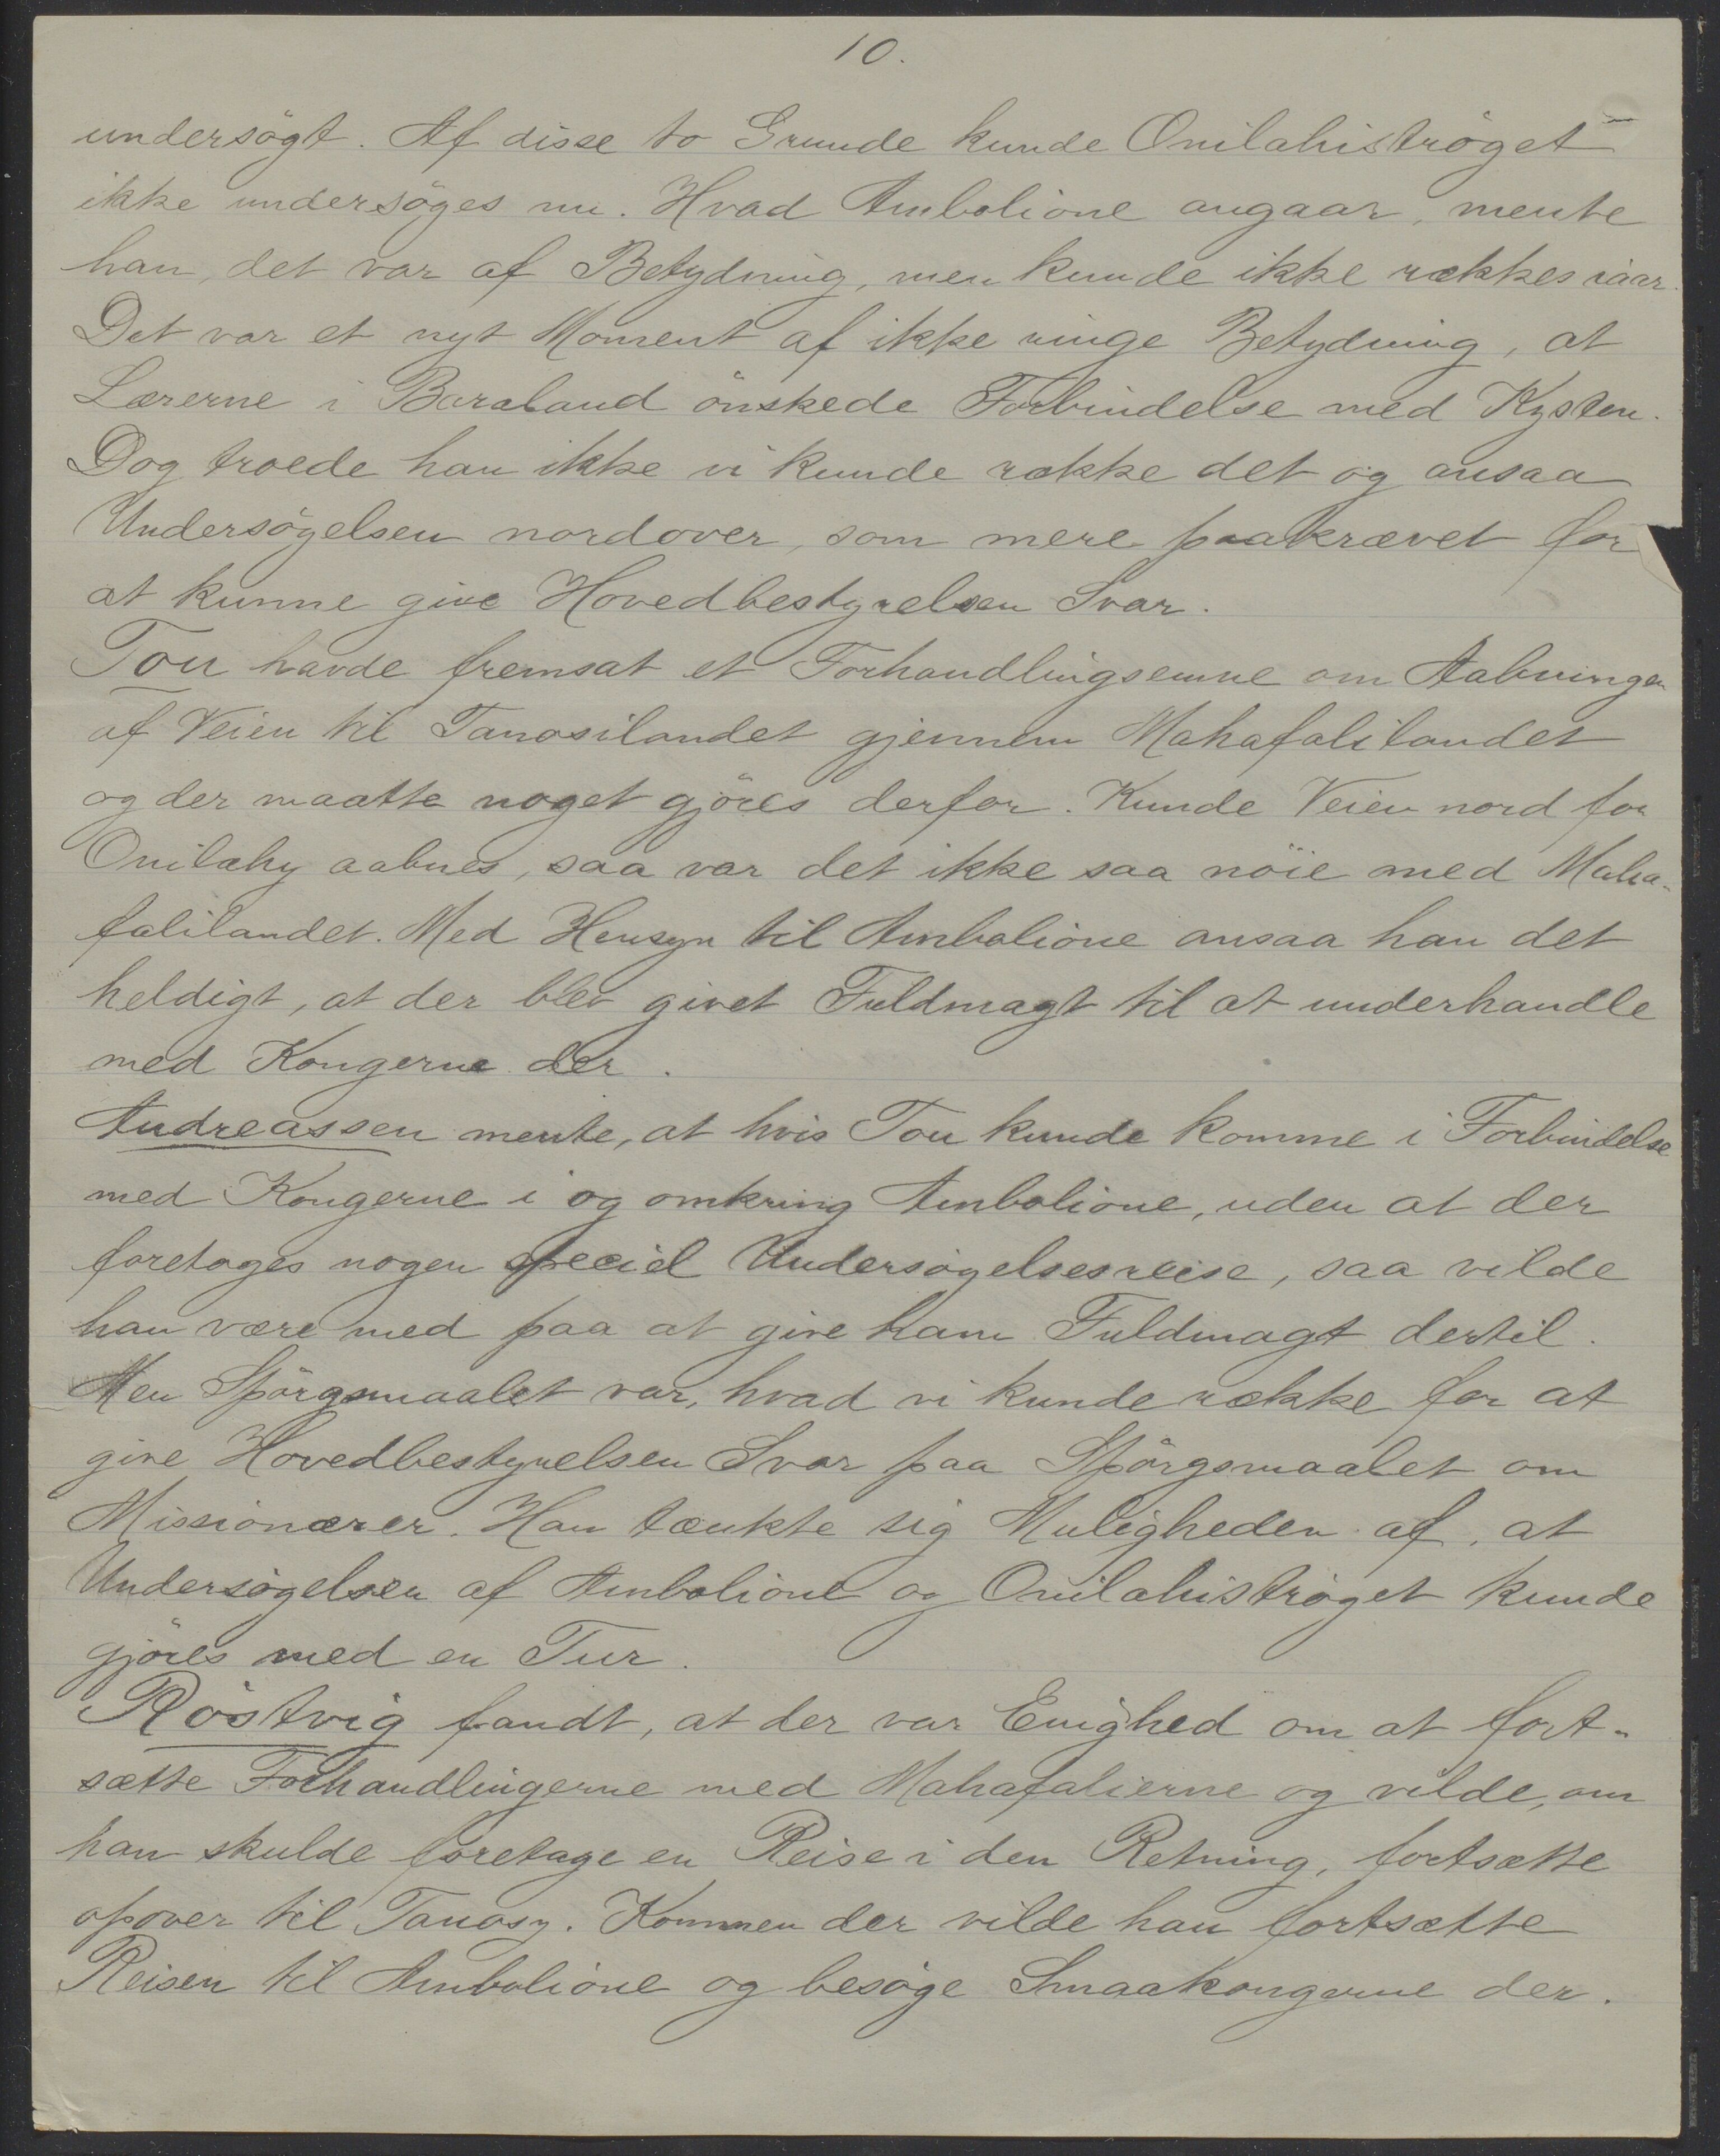 10.
undersögt. Af disse to Grunde kunde Onilahiströget
ikke undersöges nu. Hvad Ambolione angaar, mente
han, det var af Betydning, men kunde ikke rækkes iaar.
Det var et nyt Moment af ikke ringe Betydning, at
Lærerne i Baraland önskede Forbindelse med Kysten.
Dog troede han ikke vi kunde række det og ansaa
Undersögelsen nordover, som mere paakrævet for
at kunne give Hovedbestyrelsen Svar.
Tou havde fremsat et Forhandlingsemne om Aabningen
af Veien til Tanosilandet gjennem Mahafalilandet
og der maatte noget gjöres derfor. Kunde Veien nord for
Onilahy aabnes, saa var det ikke saa nöie med Maha-
falilandet. Med Hensyn til Ambolione ansaa han det
heldigt, at der blev givet Fuldmagt til at underhandle
med Kongerne der.
Andreassen mente, at hvis Tou kunde komme i Forbindelse
med Kongerne i og omkring Ambolione, uden at der
foretages nogen speciel Undersögelsesreise, saa vilde
han være med paa at give ham Fuldmagt dertil.
Men Spörgsmaalet var, hvad vi kunde række for at
give Hovedbestyrelsen Svar paa Spörgsmaalet om
Missionærer. Han tænkte sig Muligheden af, at
Undersögelsen af Ambolione og Onilahiströget kunde
gjöres med en Tur.
Röstvig fandt, at der var Enighed om at fort-
sætte Forhandlingerne med Mahafalierne og vilde, om
han skulde foretage en Reise i den Retning, fortsætte
opover til Tanosy. Kommen der vilde han fortsætte
Reisen til Ambolione og besöge Smaakongerne der.